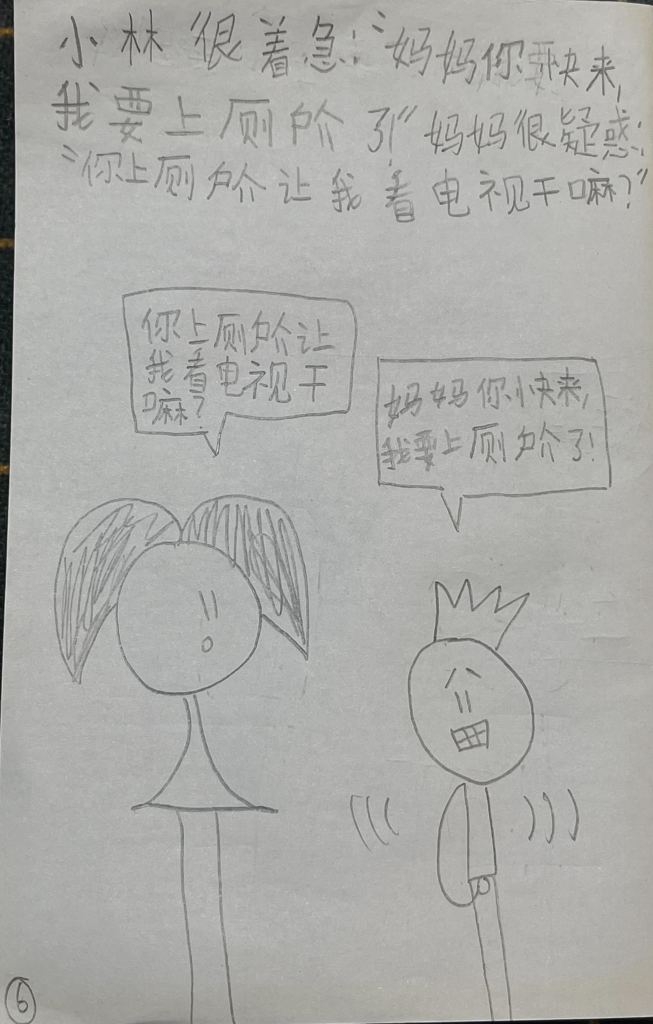 小林很着急:“妈妈你要快来,
我要上厕所了!”妈妈很疑惑:
“你上厕所让我看电视干嘛?”
你上厕所让
我看电视干
嘛?
妈妈你快来,
我要上厕所了!
6